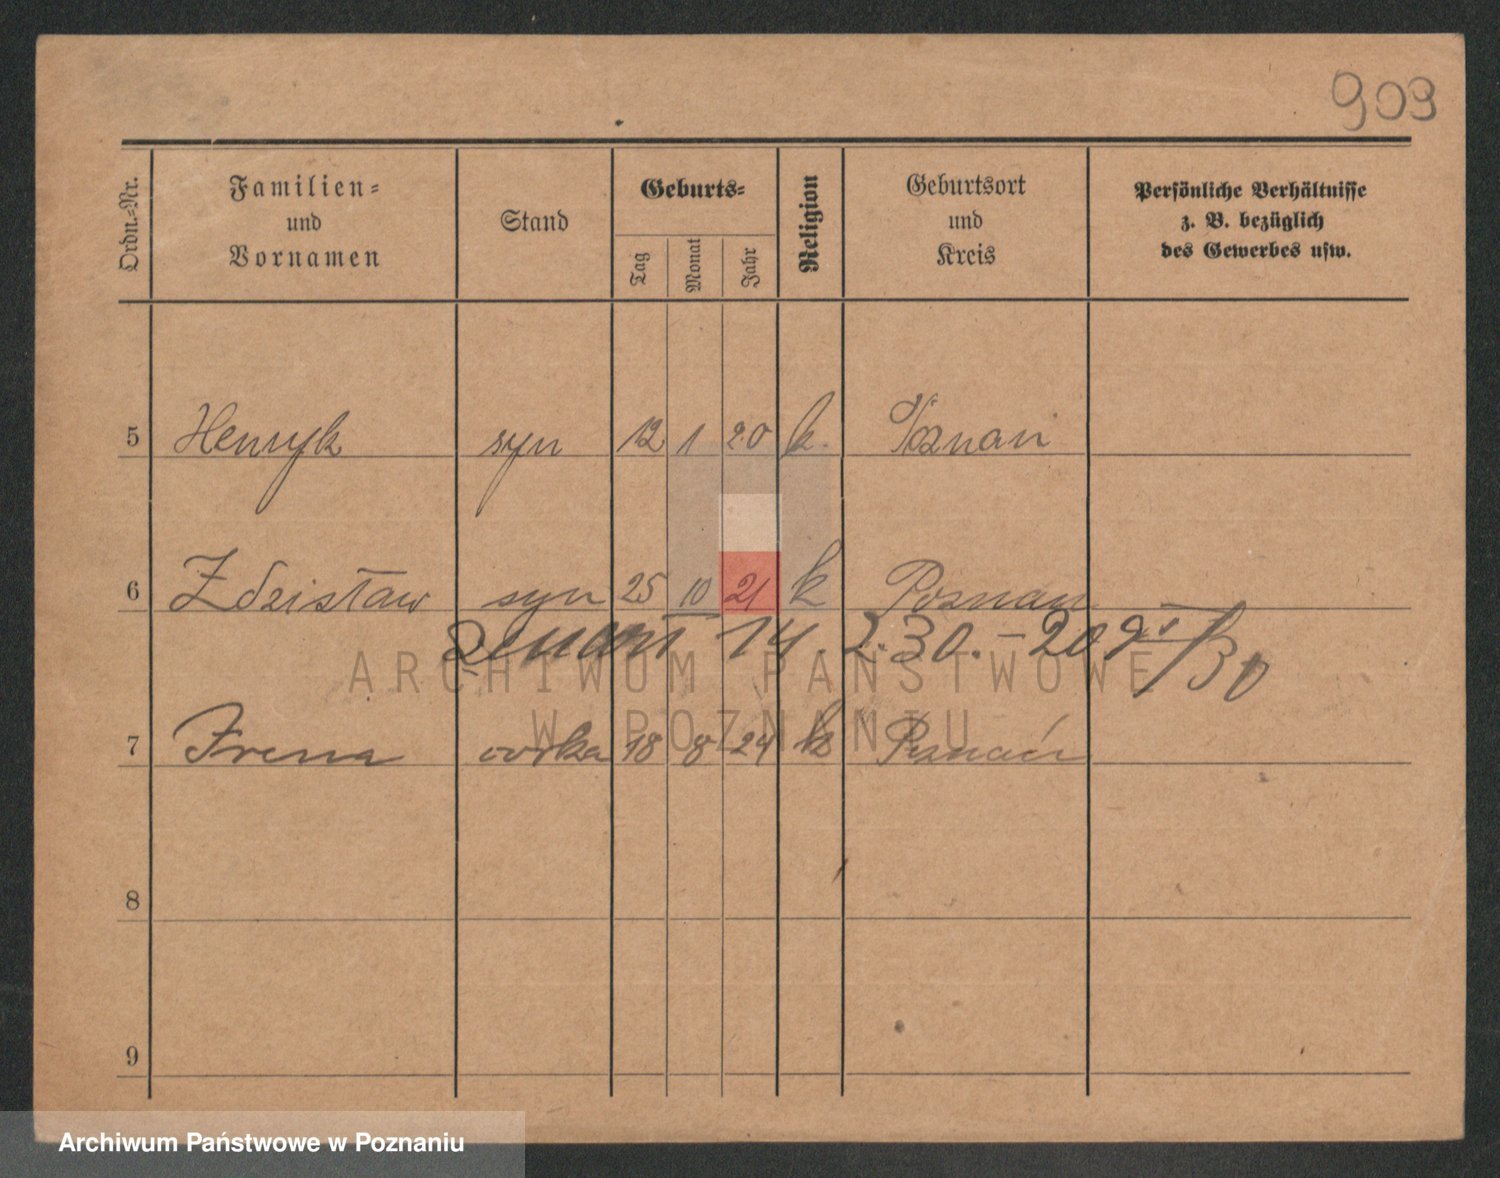 903
Ordn.-Nr.
Familien-
und
Vornamen
Stand
Geburts-
Tag
Monat
Jahr
Religion
Geburtsort
und
Kreis
Persönliche Verhältnisse
z. B. bezüglich
des Gewerbes usw.
5 Henryk syn 12 1 20 k. Poznań
6 Zdzisław syn 25 10 21 k Poznań
14. 2. 30. - 209
7 Irena córka 18 8 24 k Poznań
8
9
ARCHIWUM PAŃSTWOWE
W POZNANIU
Archiwum Państwowe w Poznaniu